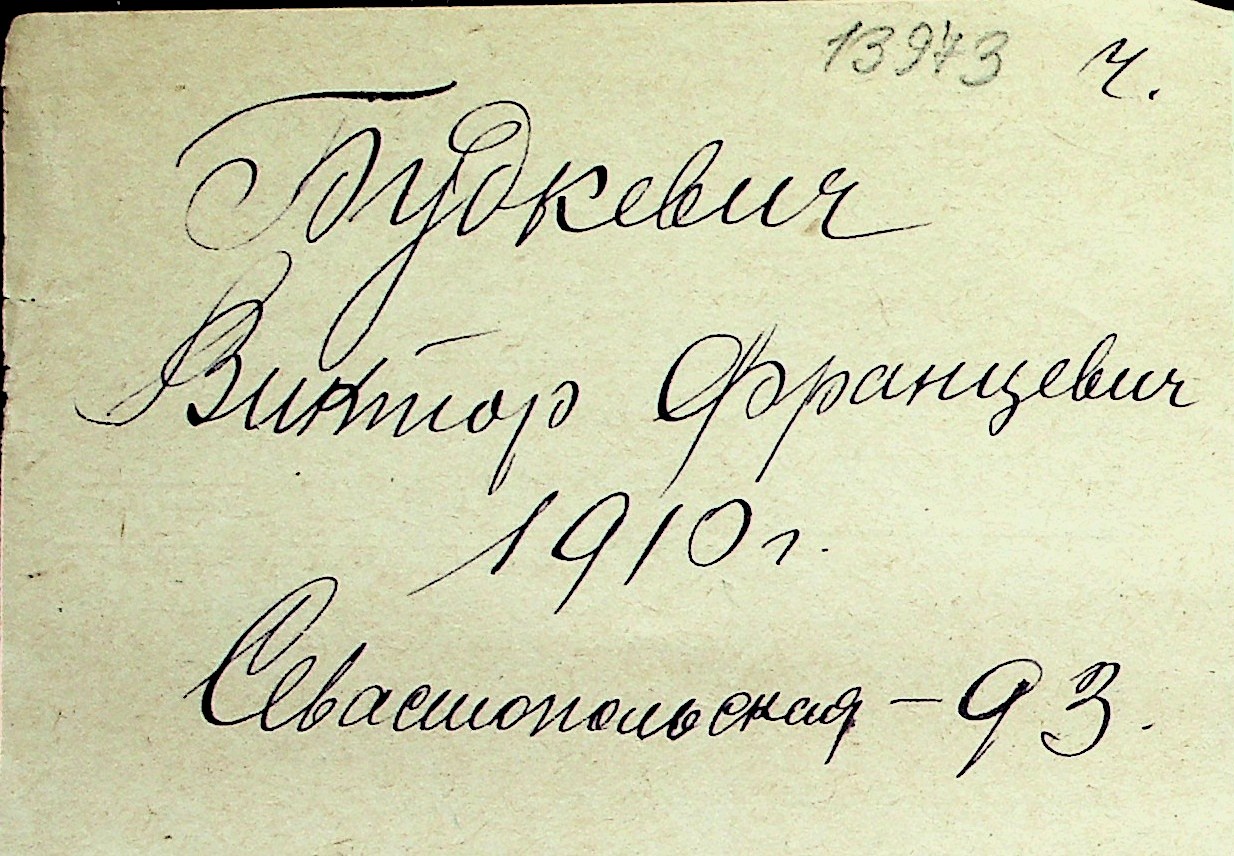 13973 ч.
Будкевич
Виктор Францевич
1910 г.
Севастопольская - 93.